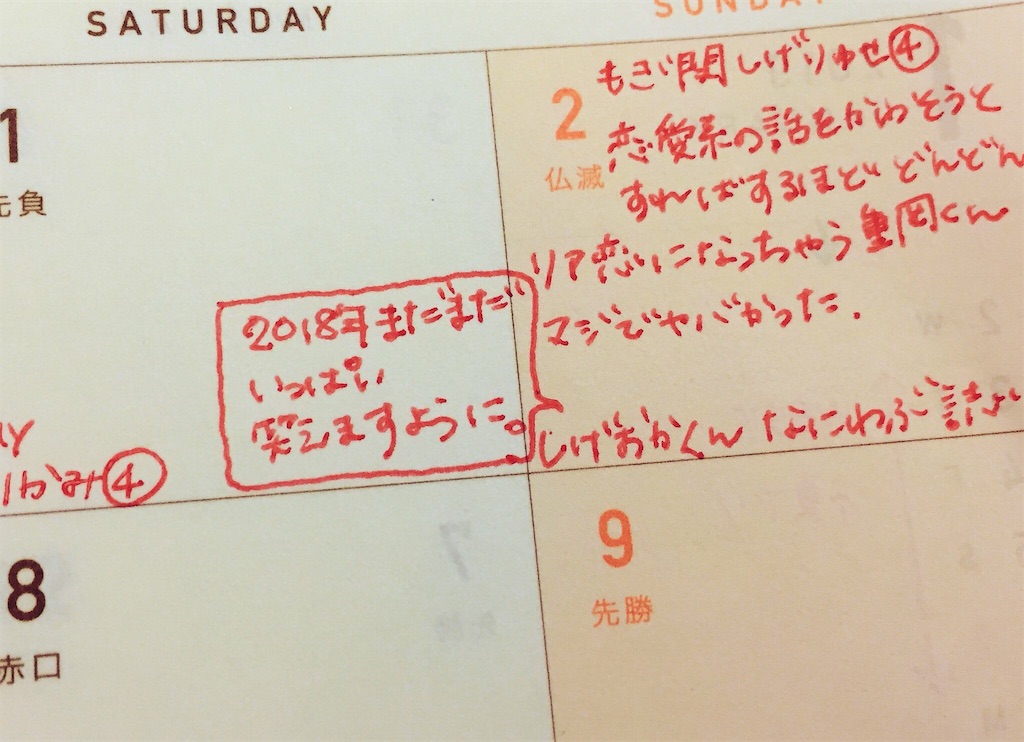 SATURDAY
SUNDAY
1
先負
2
仏滅
もぎ関しげりゅせ④
恋愛系の話をかわそうと
すればするほど どんどん
リア恋になっちゃう重岡くん
マジでヤバかった.
2018年まだまだ
いっぱい
笑えますように。
しげおかくん なにわぶ 読よ
かみ④
8
赤口
9
先勝